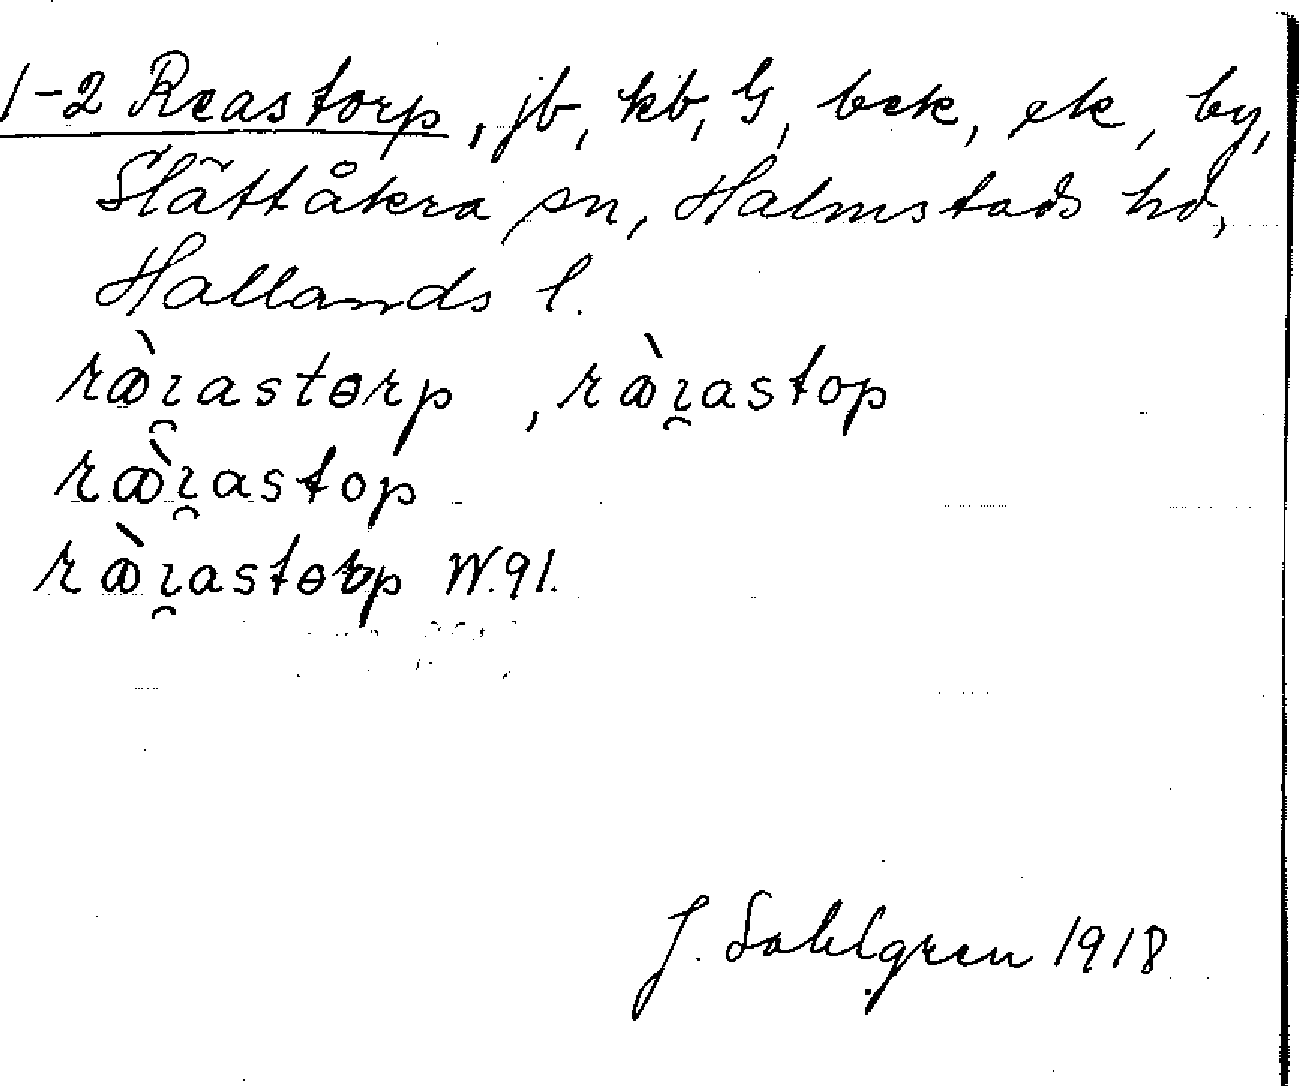 1-2 Reastorp, jb, kb, G, bek, ek, by,
Slättåkra sn, Halmstads hd,
Hallands l.
ræ̀ɿ̯astɵrp, ræ̀ɿ̯astop
ræ̀ɿ̯astop
ræ̀ɿ̯astɵrp W.91.
J. Sahlgren 1918